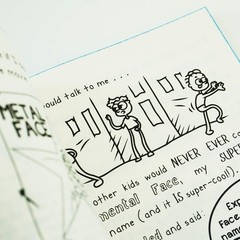 METAL
FACE
ould talk to me . . .
other kids would NEVER EVER c
mental Face, my SUPE
name (and it IS super-cool!).
ed and said:
Exp
Face
nam